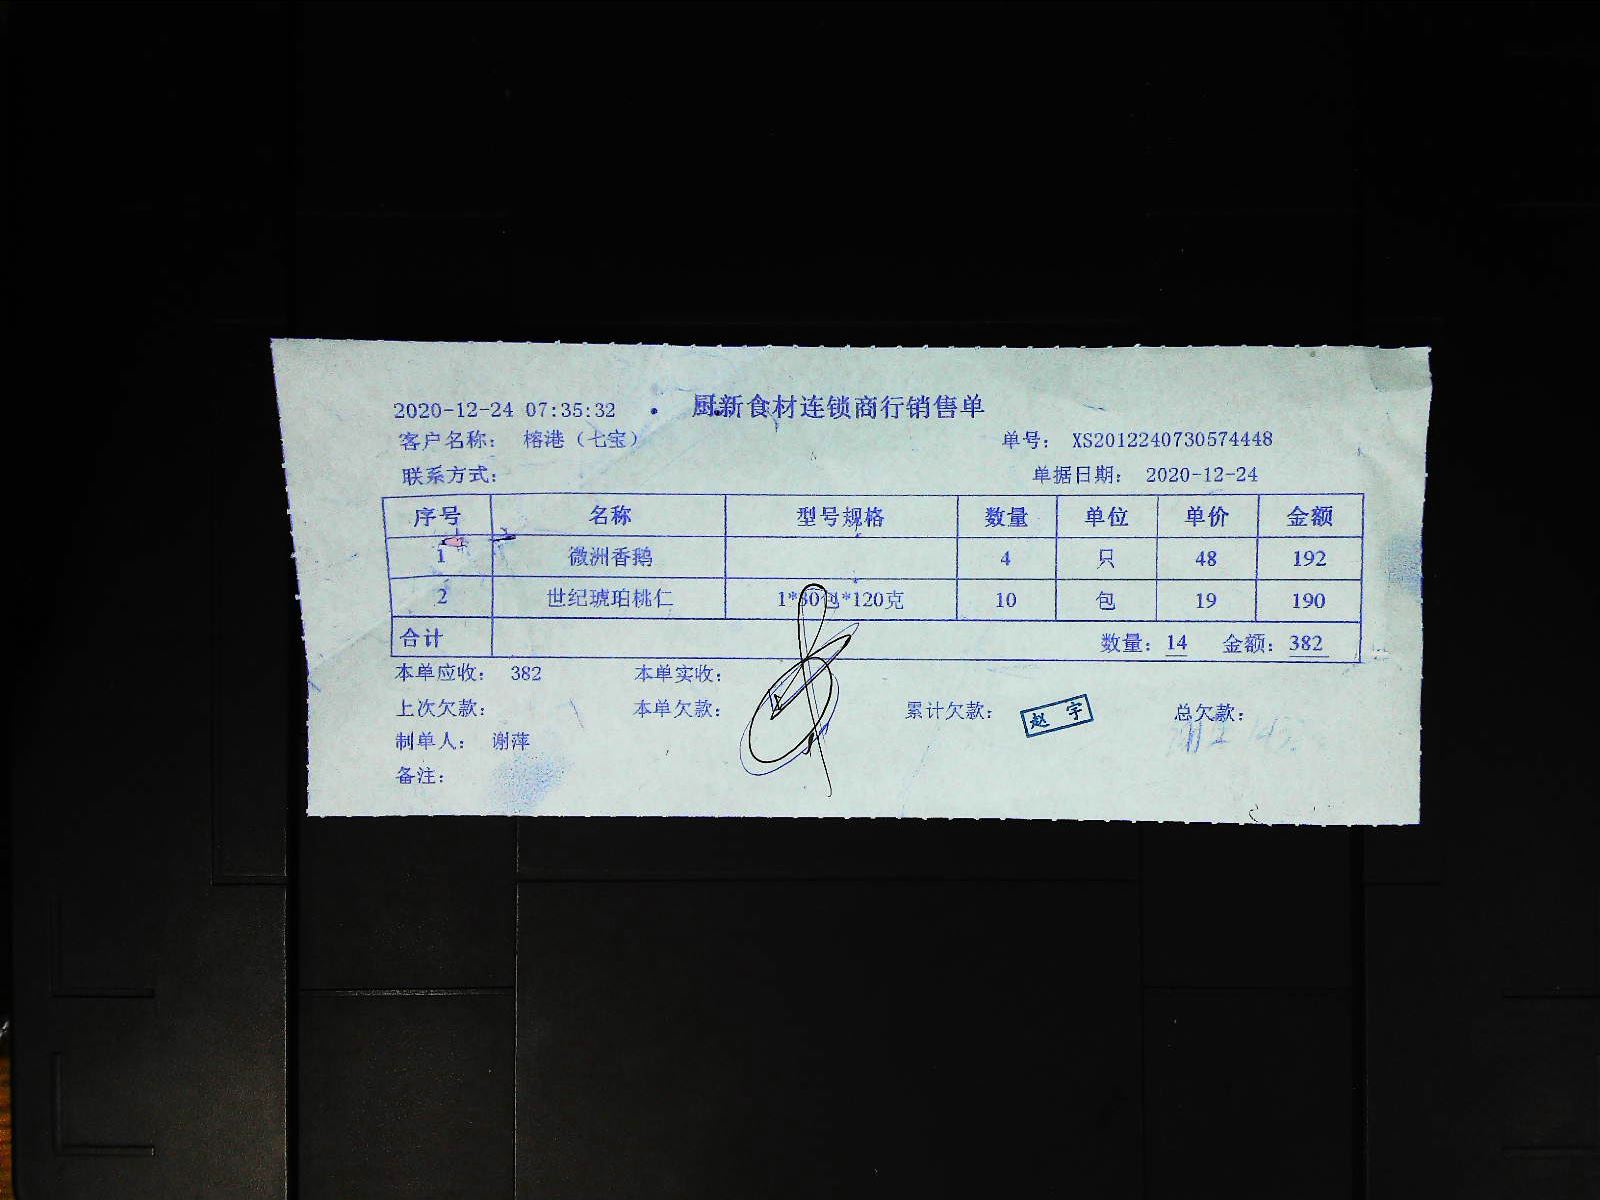 2020-12-24 07:35:32 厨新食材连锁商行销售单
客户名称： 榕港（七宝） 单号： XS2012240730574448
联系方式： 单据日期： 2020-12-24
序号 名称 型号规格 数量 单位 单价 金额
1 微洲香鹅 4 只 48 192
2 世纪琥珀桃仁 1*30包*120克 10 包 19 190
合计 数量：14 金额：382
本单应收： 382 本单实收：
上次欠款： 本单欠款： 累计欠款： 赵宇 总欠款：
制单人： 谢萍
备注：